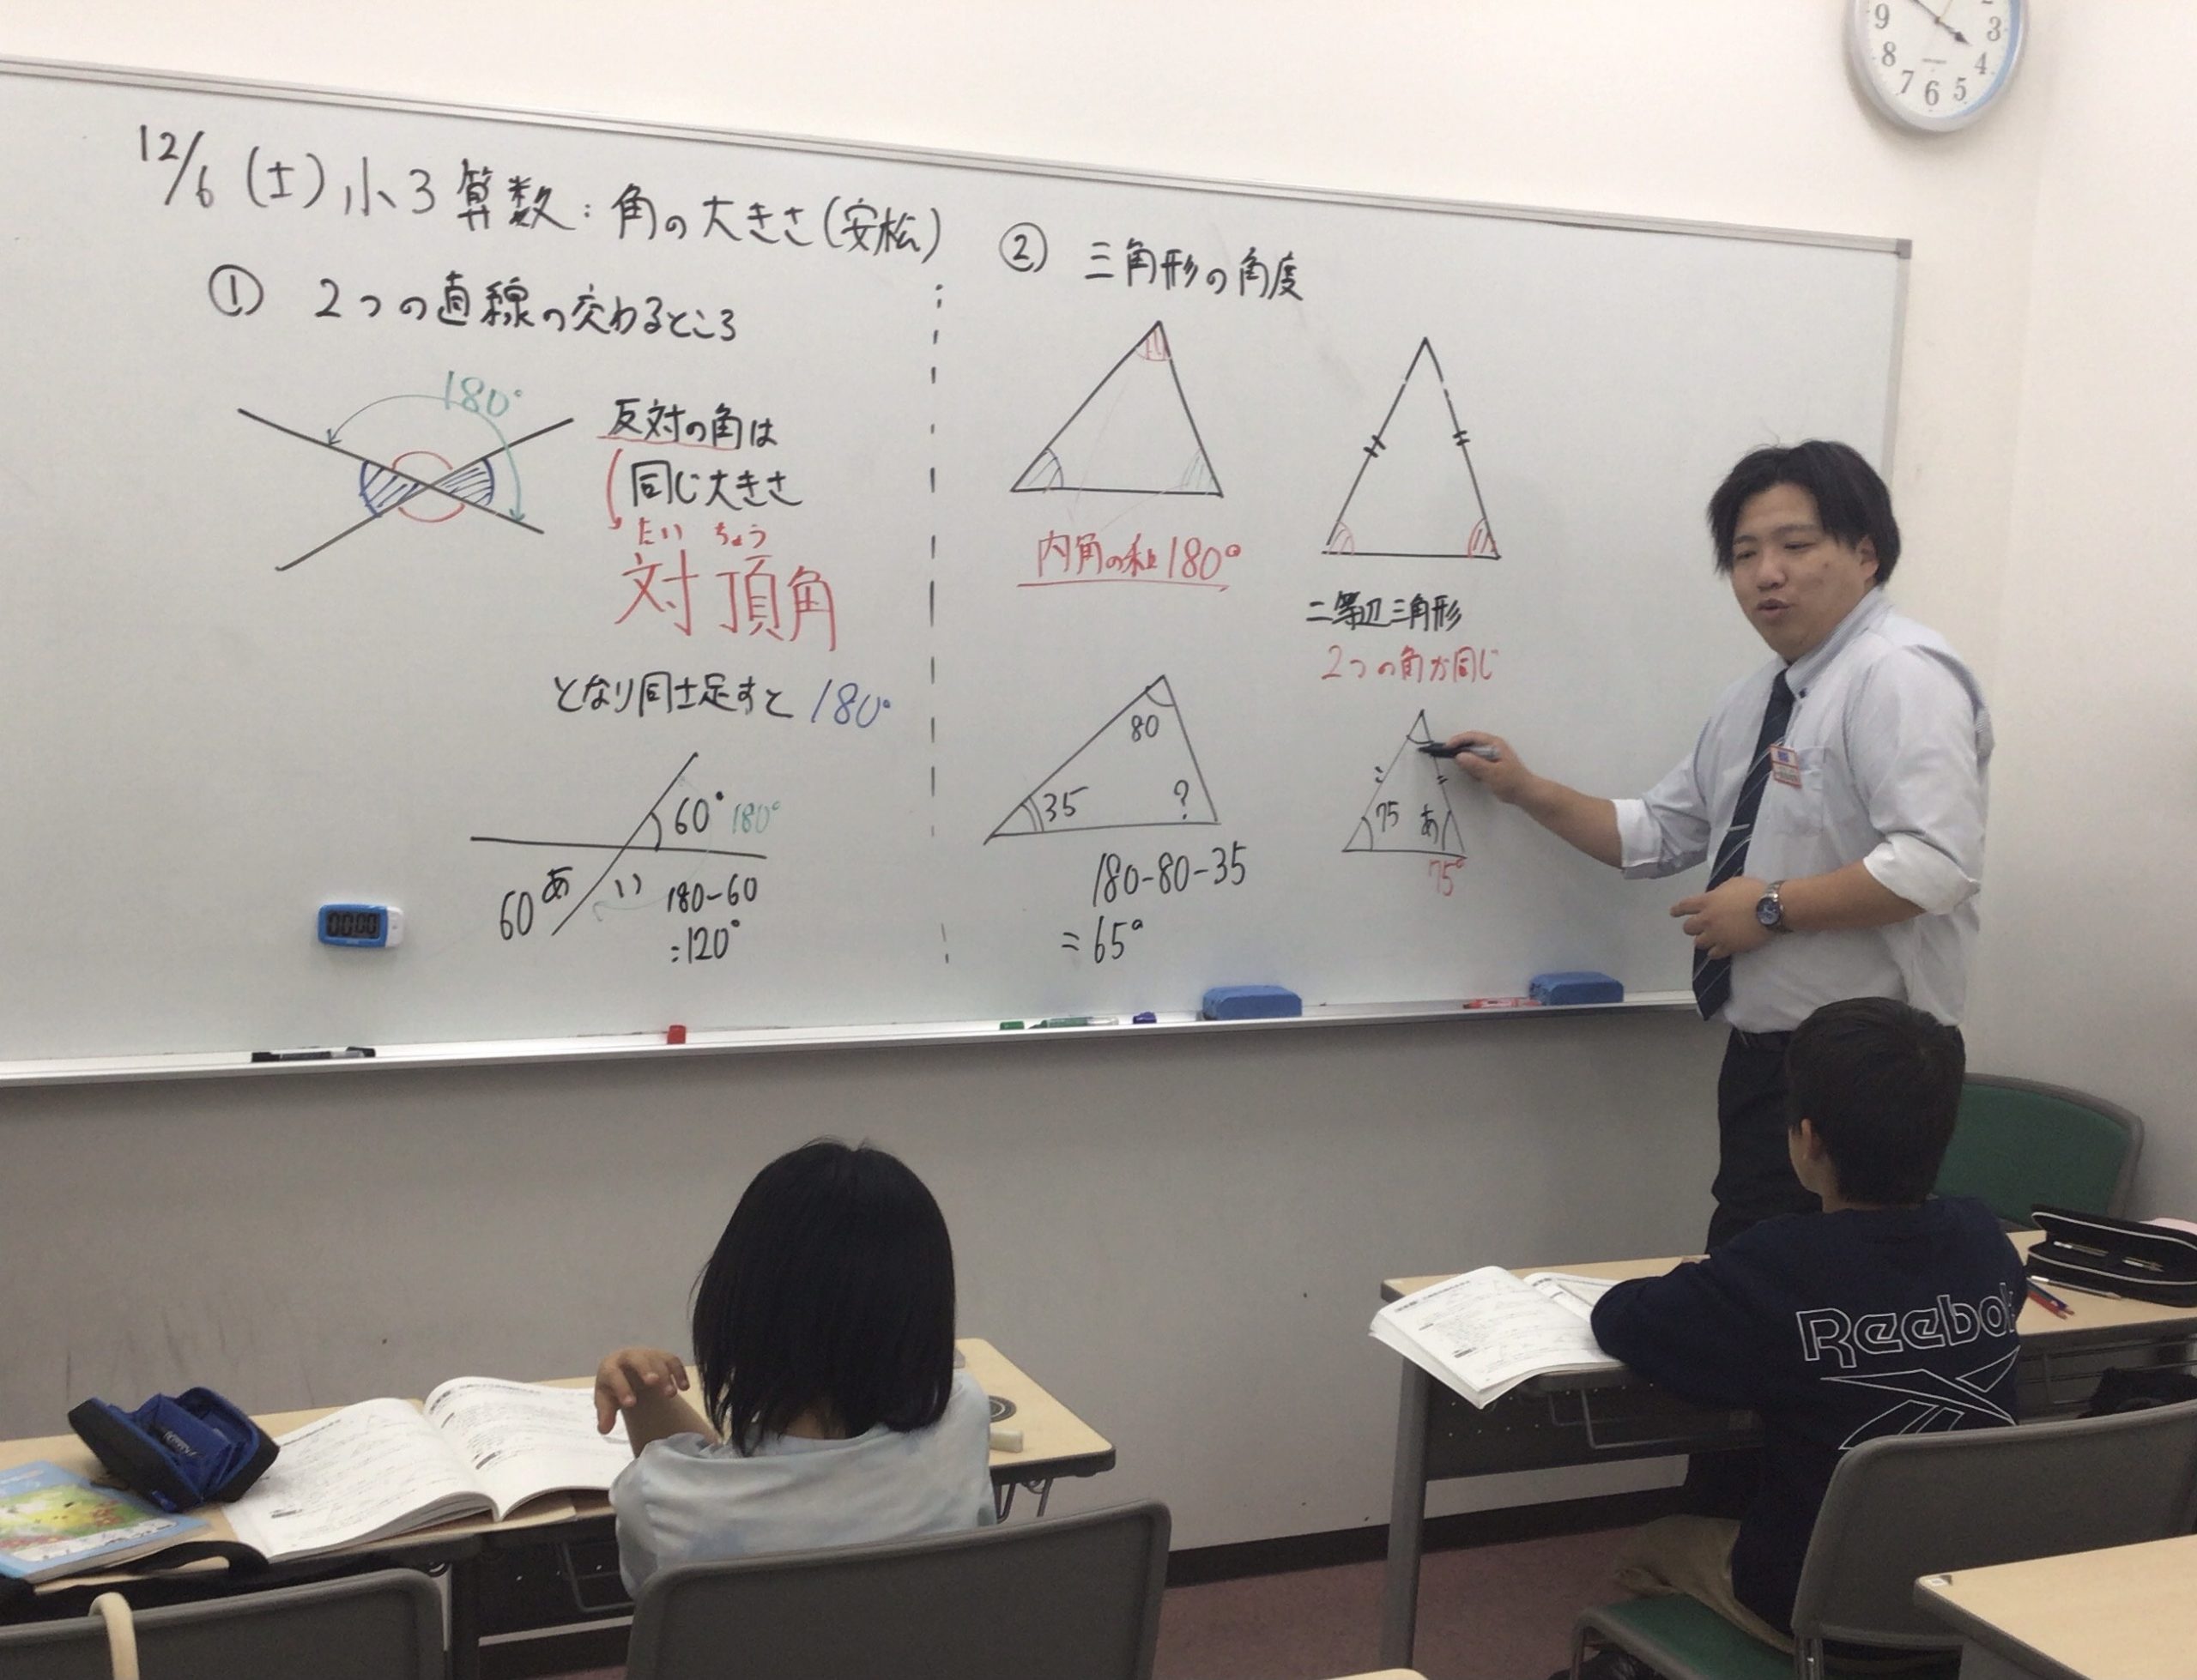 12/6(土)小3算数:角の大きさ(安松)
① 2つの直線の交わるところ
180°
反対の角は
同じ大きさ
たいちょう
対頂角
となり同士足すと180°
60° 180°
60 あ い 180-60
=120°
② 三角形の角度
内角の和180°
二等辺三角形
2つの角が同じ
80
35 ?
180-80-35
=65°
75 あ
75°
00:00
9 8 7 6 5 4 3 2
Reebok